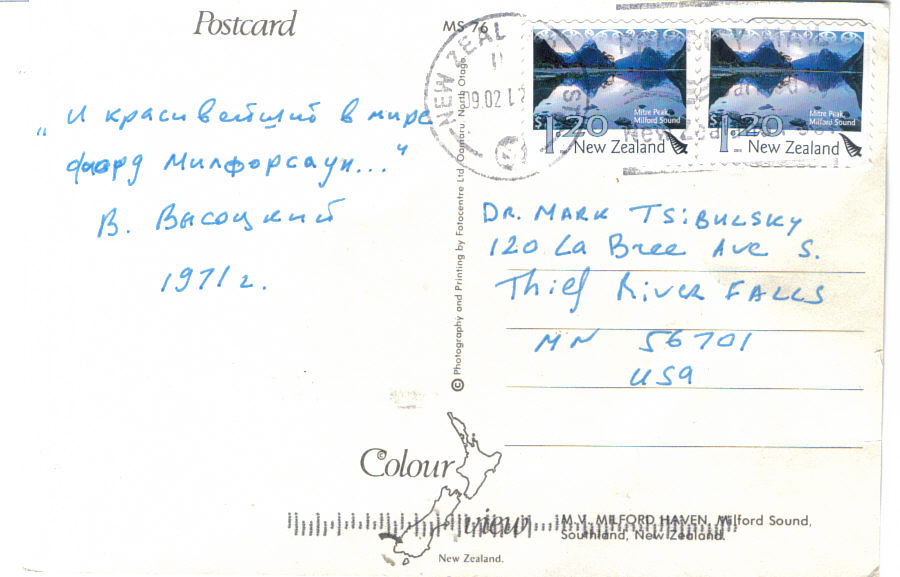 Postcard
MS 76
„И красивейший в мире
фиорд Милфорсаун..."
В. Высоцкий
1971 г.
© Photography and Printing by Fotocentre Ltd, Oamaru, North Otago.
NEW ZEAL
09.02.12
Mitre Peak,
Milford Sound
$1.20
New Zealand
Mitre Peak,
Milford Sound
$1.20
New Zealand
DR. MARK TSIBULSKY
120 La Bree Ave S.
Thief River FALLS
MN 56701
USA
Colour
©
view
New Zealand.
M.V. MILFORD HAVEN, Milford Sound,
Southland, New Zealand.